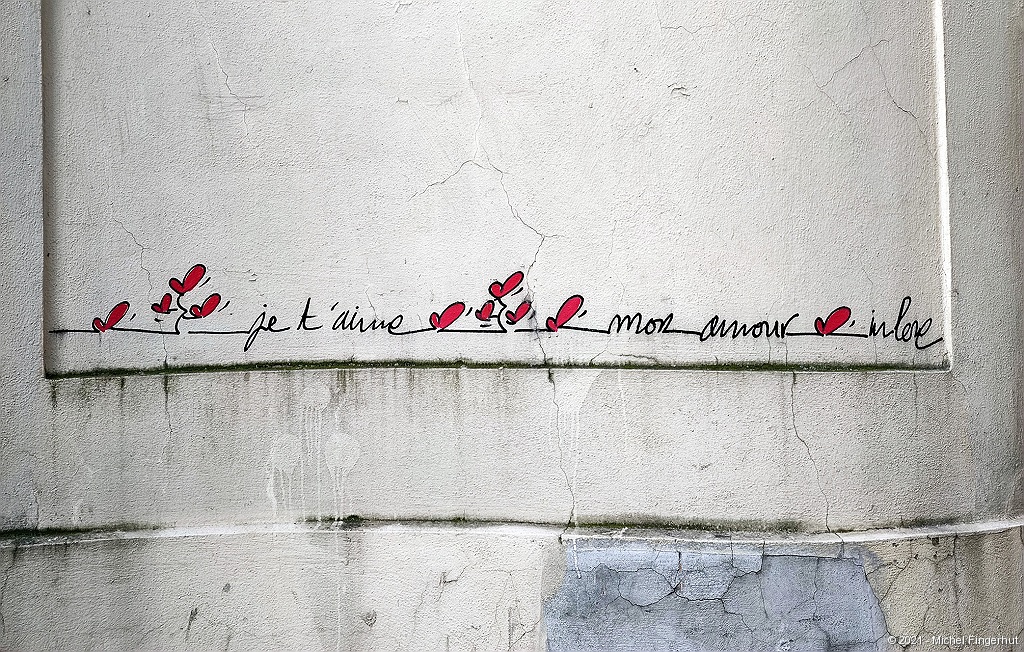 je t'aime mon amour in love
© 2021 - Michel Fingerhut